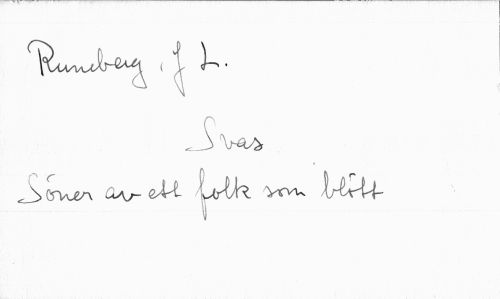 Runeberg, J L.
Svas
Söner av ett folk som blött